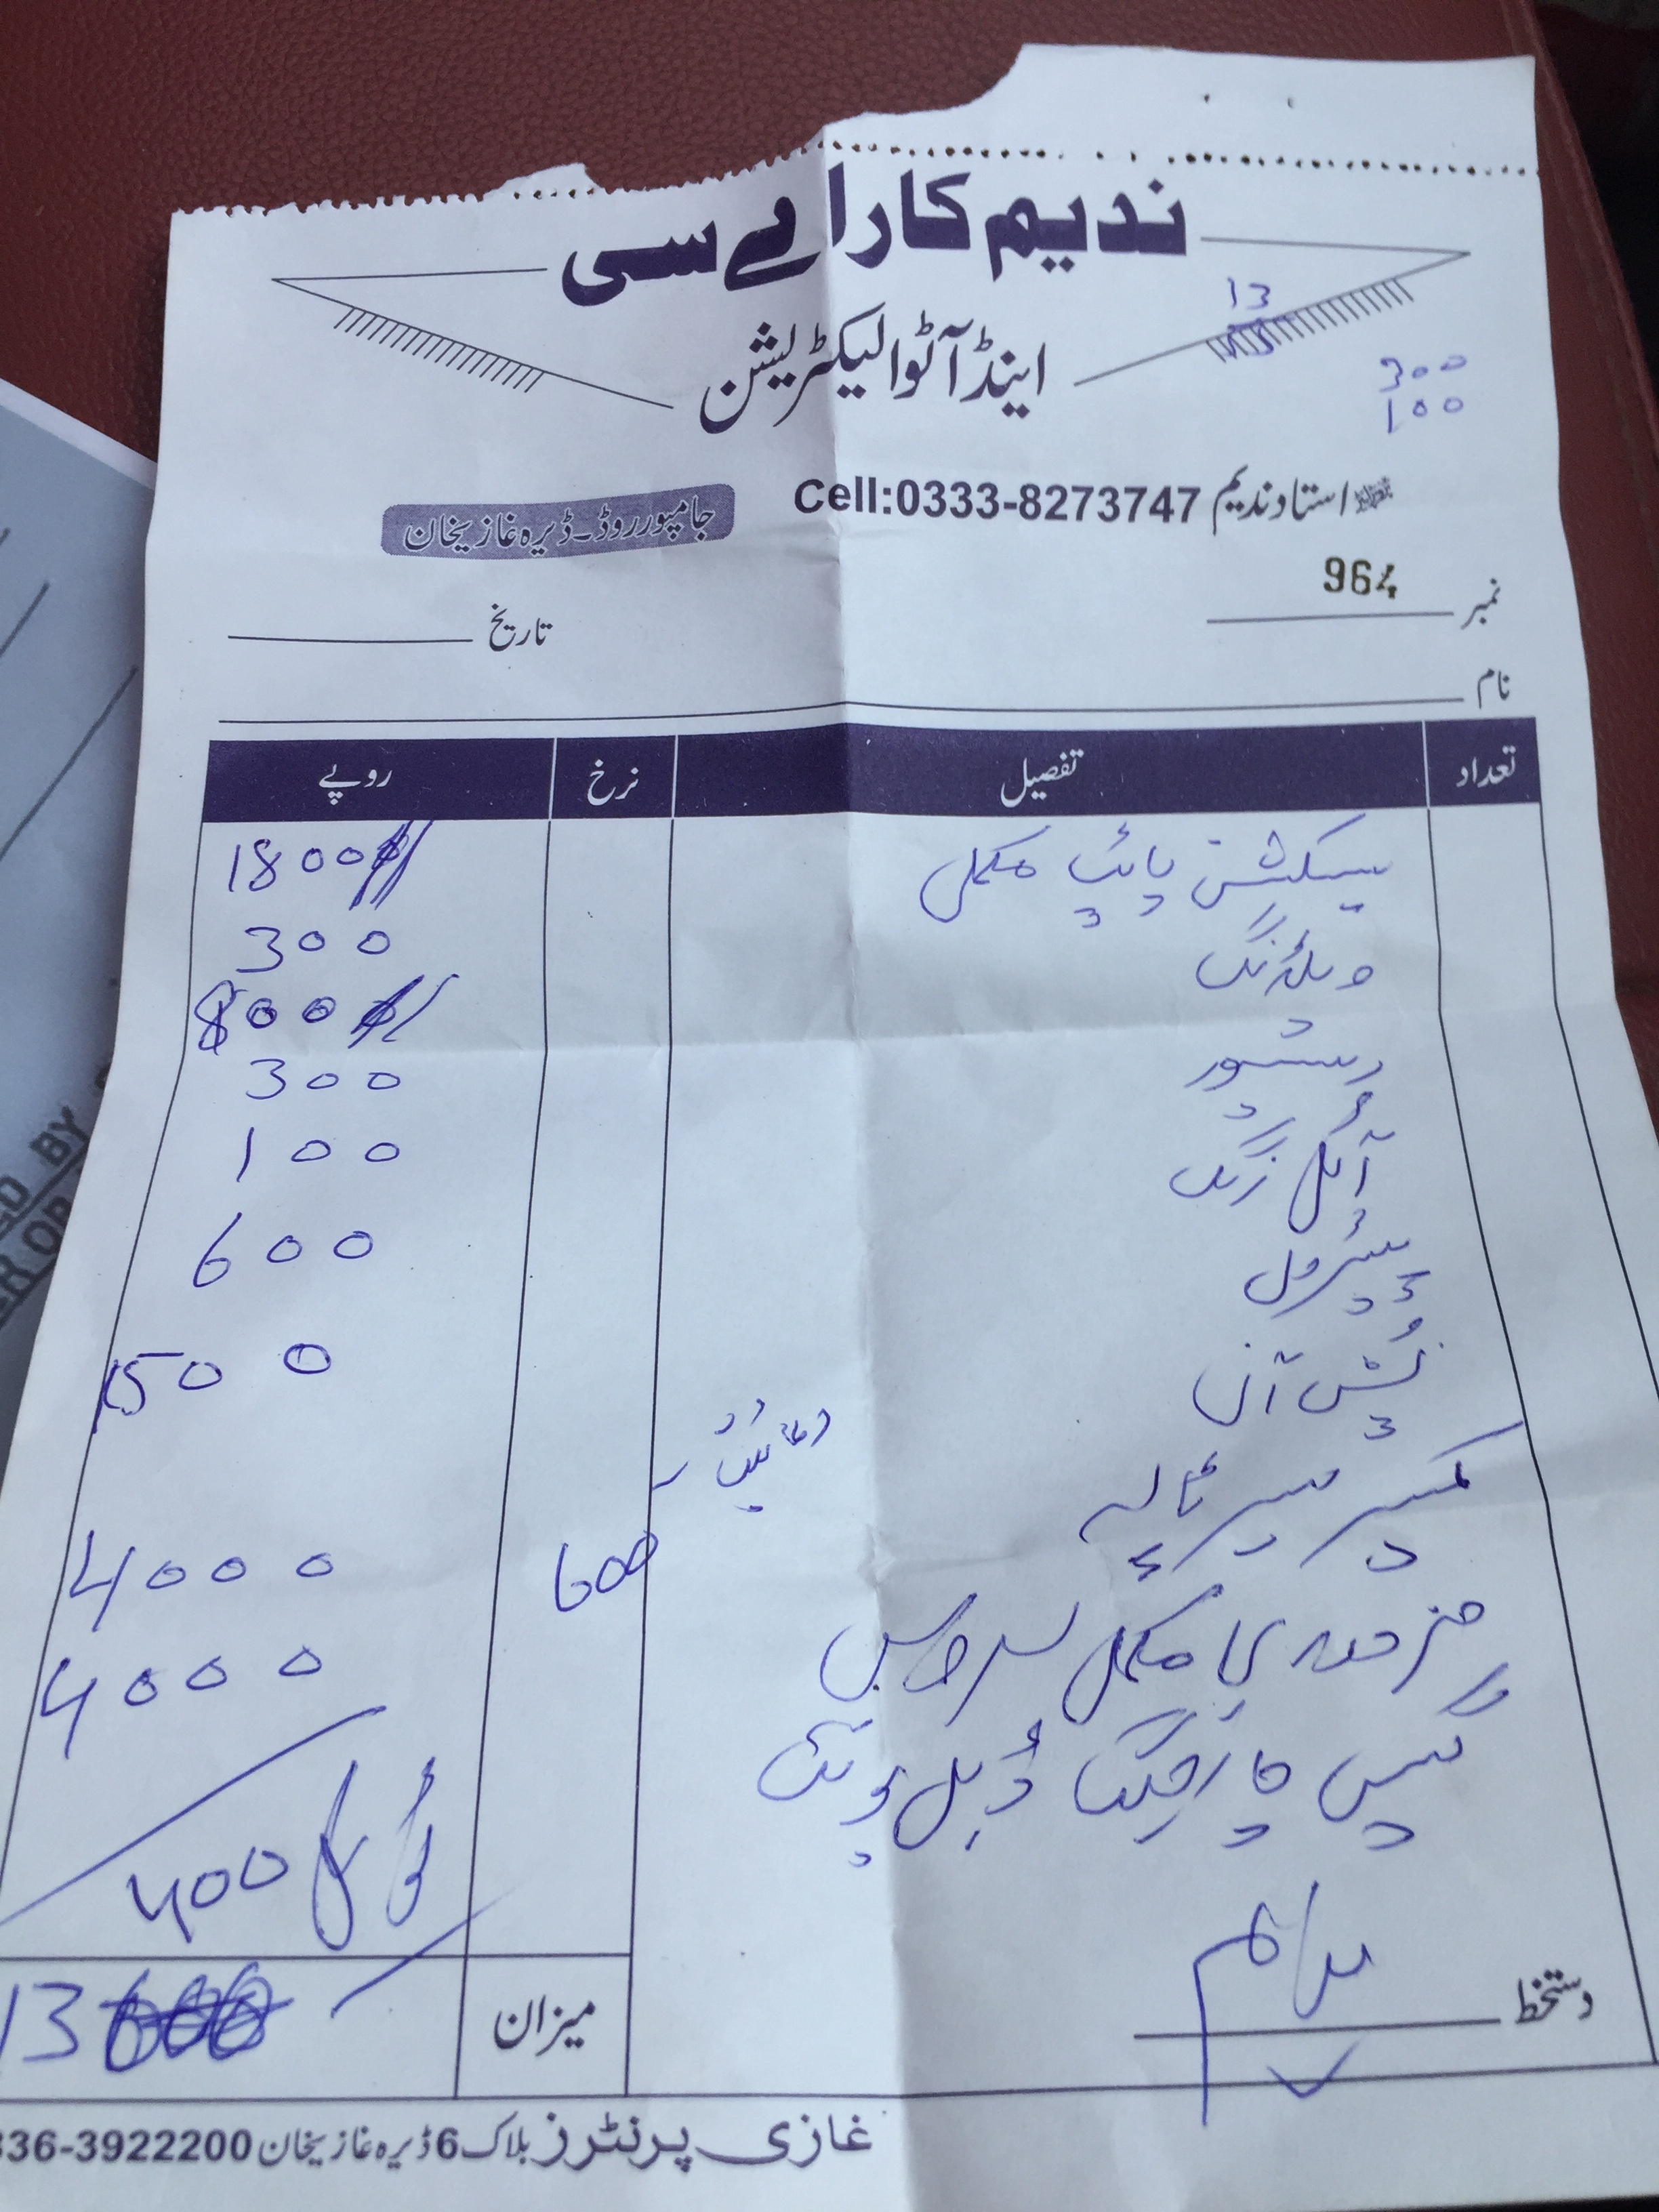 ندیم کار اے سی
اینڈ آٹو الیکٹریشن
13
300
100
استاد ندیم Cell:0333-8273747
جامپور روڈ۔ ڈیرہ غازیخان
نمبر 964
تاریخ
نام
تعداد تفصیل نرخ روپے
سیکشن پائپ مکمل 1800
ویلڈنگ 300
پریشور 800
آئل رنگ 300
پیٹرول 100
600
1500
کمپریسر 600 4000
مزدوری مکمل سروس 4000
گیس چارجنگ ڈبل پوائنٹ
ٹوٹل 400
دستخط
میزان 13
غازی پرنٹرز بلاک 6 ڈیرہ غازیخان 336-3922200